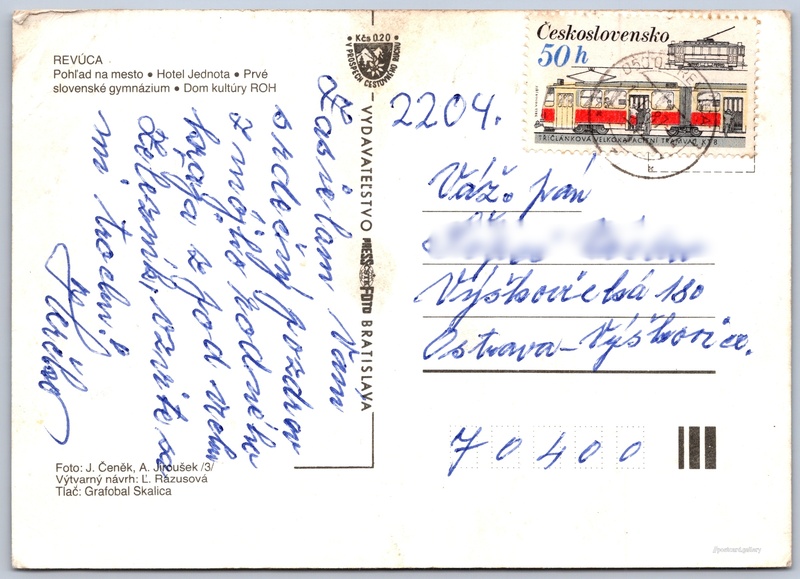 REVÚCA
Pohľad na mesto • Hotel Jednota • Prvé
slovenské gymnázium • Dom kultúry ROH
Kčs 0.20
V PROSPECH CESTOVNÉHO RUCHU
VYDAVATEĽSTVO PRESSFOTO BRATISLAVA
Československo
50 h
TŘÍČLÁNKOVÁ VELKOKAPACITNÍ TRAMVAJ KT8
2204.
Zasielam Vám
srdečný pozdrav
z môjho rodného
kraja z pod
Železník,
mi
Váž. pán
Výškovická 180
Ostrava-Výškovice.
70400
Foto: J. Čeněk, A. Jiroušek /3/
Výtvarný návrh: Ľ. Rázusová
Tlač: Grafobal Skalica
postcard.gallery